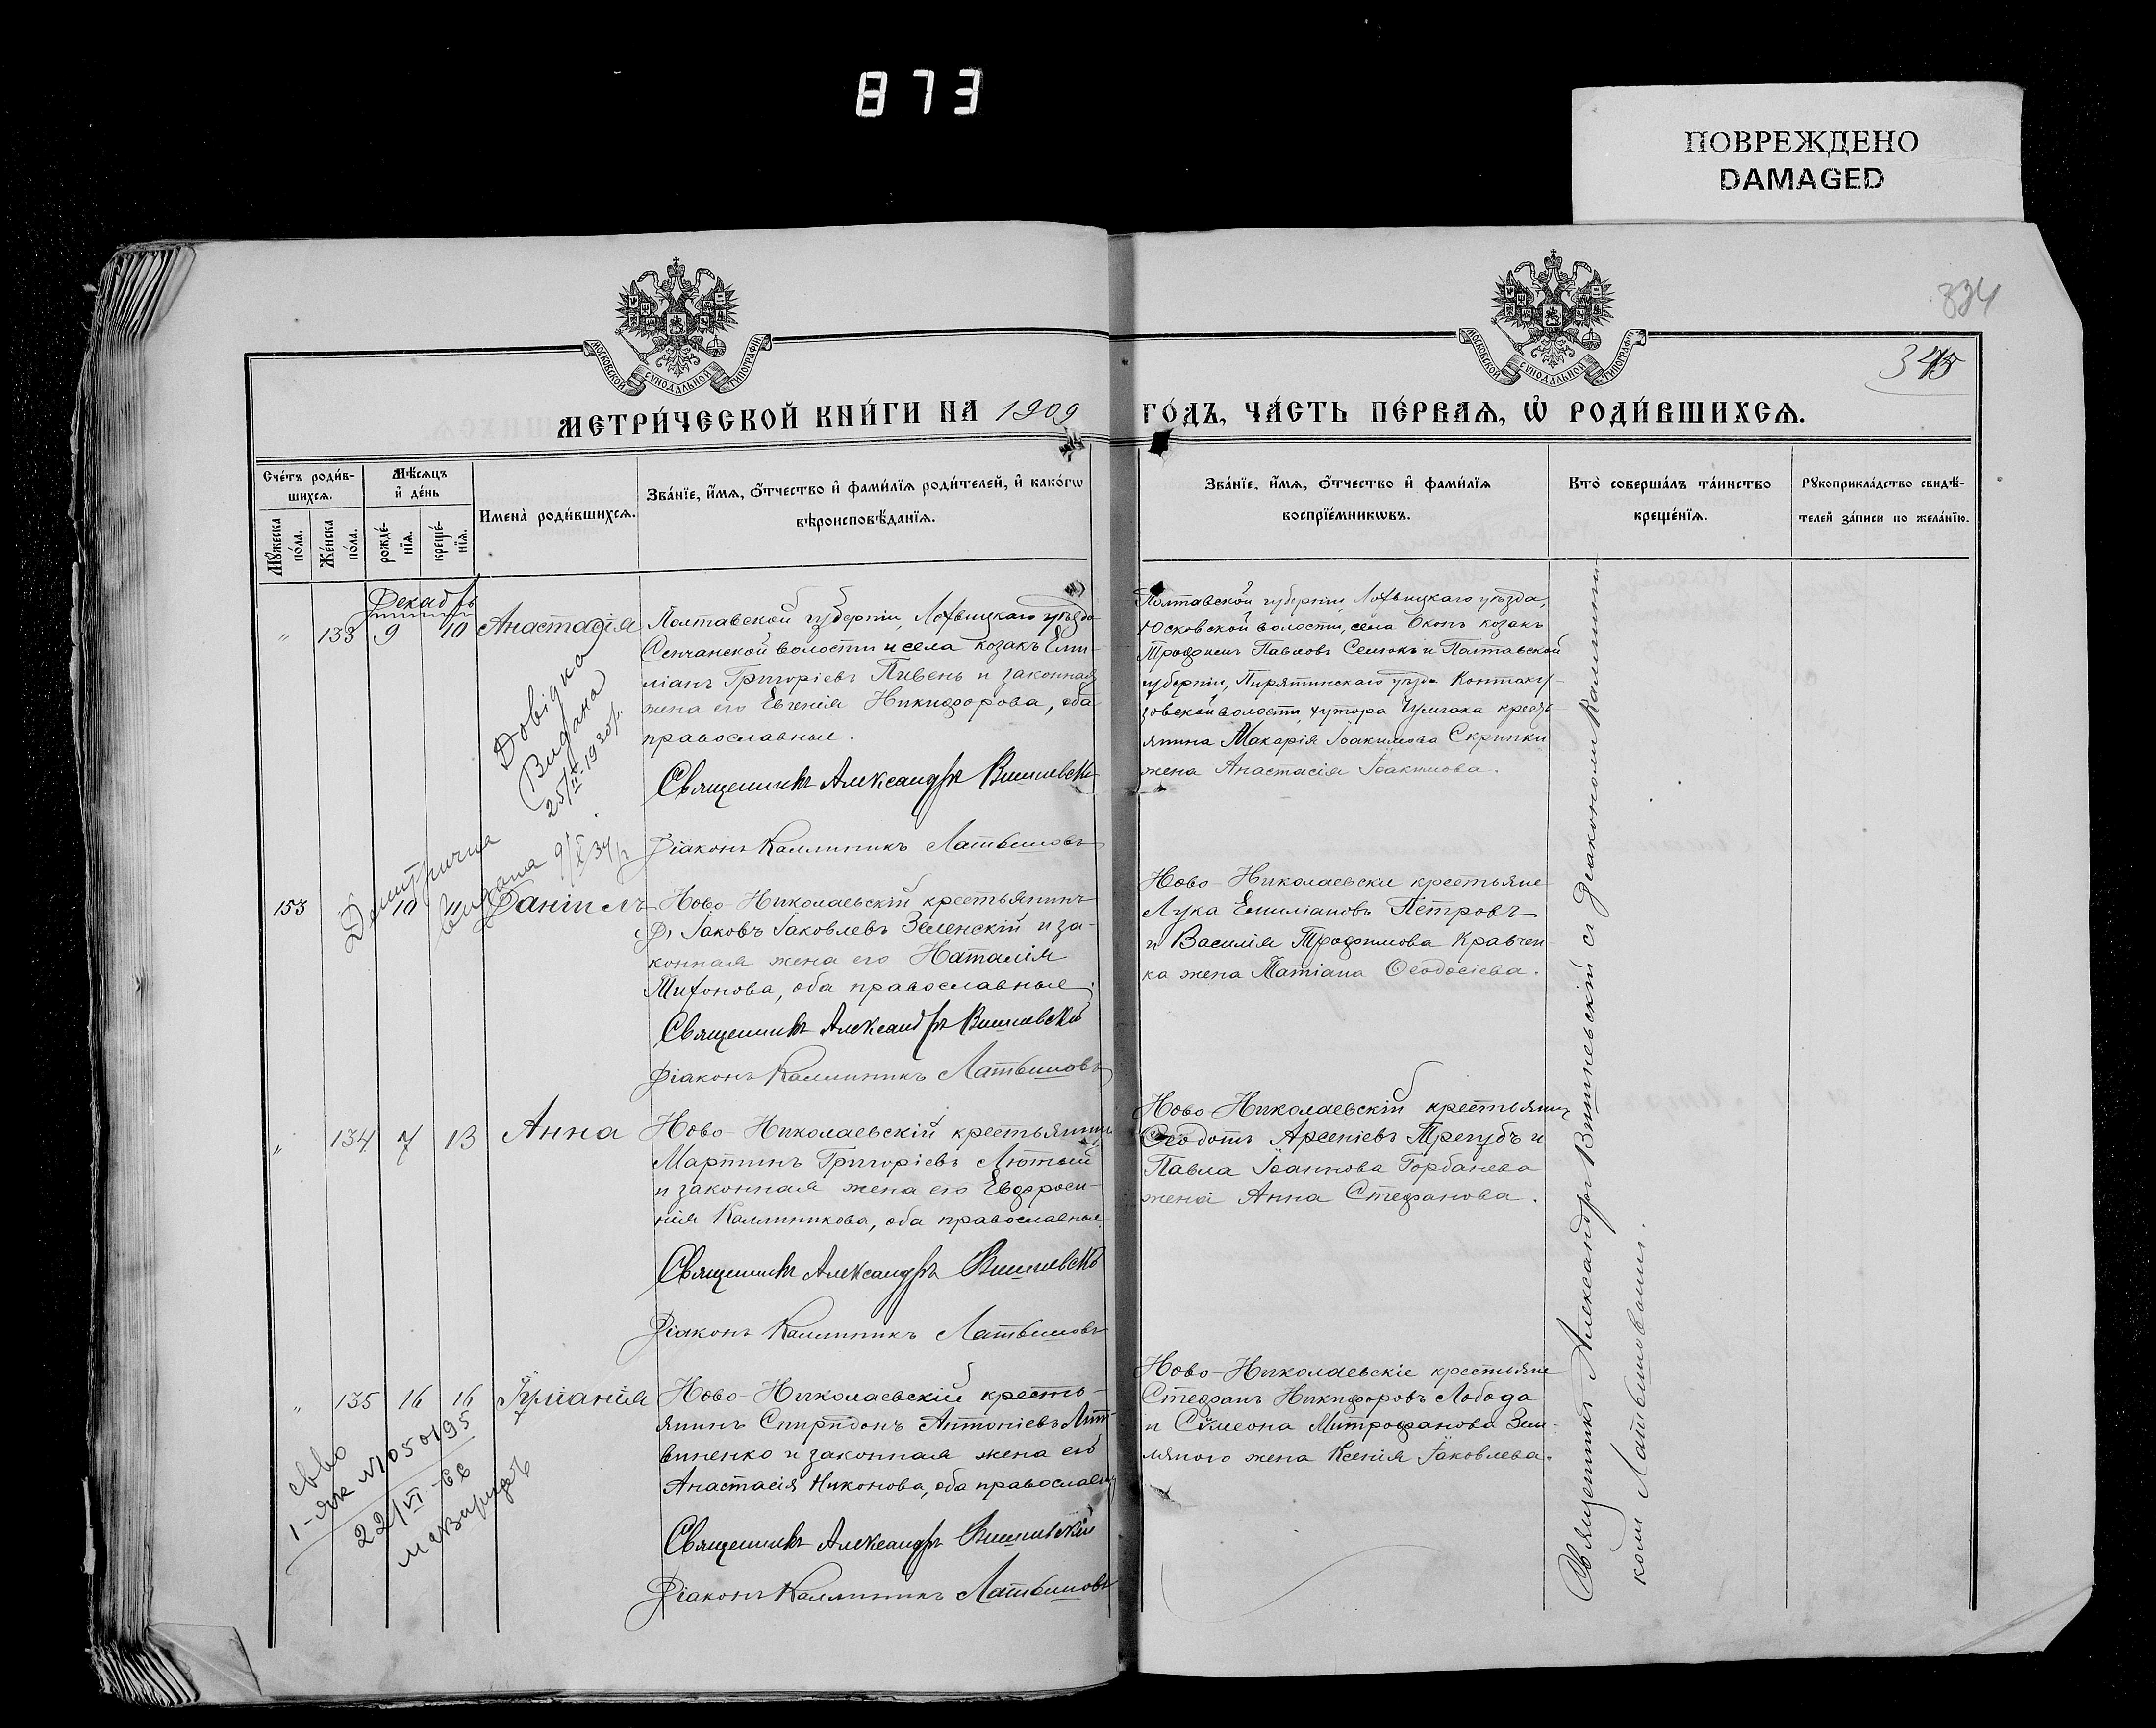 873
ПОВРЕЖДЕНО
DAMAGED
334
МОСКОВСКОЙ СѴНОДАЛЬНОЙ ТИПОГРАФІИ
МОСКОВСКОЙ СѴНОДАЛЬНОЙ ТИПОГРАФІИ
МЕТРИ́ЧЕСКОЙ КНИ́ГИ НА 1909
ГО́ДЪ, ЧА́СТЬ ПЕ́РВАѦ, Ѡ҆ РОДИ́ВШИХСѦ.
Сче́тъ роди́в-
шихсѧ.
Мꙋ́жеска по́ла.
Же́нска по́ла.
Мѣ́сѧцъ
и҆ де́нь
рожде́-нїѧ.
креще́-нїѧ.
Имена̀ роди́вшихсѧ.
Зва́нїе, и҆́мѧ, ѻ҆́тчество и҆ фами́лїѧ роди́телей, и҆ како́гѡ
вѣроисповѣ́данїѧ.
Зва́нїе, и҆́мѧ, ѻ҆́тчество и҆ фами́лїѧ
воспрїе́мникѡвъ.
Кто̀ соверша́лъ та́инство
креще́нїѧ.
Рꙋкоприкла́дство свидѣ́-
телей за́писи по жела́нїю.
Декабрь
" 133 9 10 Анастасія
Полтавской губерніи, Лохвицкаго уѣзда
Сенчанской волости и села козакъ Еми-
ліанъ Григоріевъ Пивень и законная
жена его Евгенія Никифорова, оба
православные.
Священникъ Александръ Вишневскій
Діаконъ Каллиникъ Латышовъ
Довідка
Видана
25/IX 1930р.
Полтавской губерніи, Лохвицкаго уѣзда,
Юсковской волости, села Окопъ козакъ
Трофимъ Павловъ Семокъ и Полтавской
губерніи, Пирятинскаго уѣзда
зовской волости, хутора Чумгака кресть-
янина Макарія Іоакимова Скрипки
жена Анастасія Іоакимова.
153 10 11 Даніилъ
Ново-Николаевскій крестьянинъ
Іаковъ Іаковлевъ Зеленскій и за-
конная жена его Наталія
Тихонова, оба православные.
Священникъ Александръ Вишневскій
Діаконъ Каллиникъ Латышовъ
Видана 9/X 34р
Ново-Николаевскіе крестьяне
Лука Емиліановъ Петровъ
и Василія Трофимова Кравчен-
ка жена Татіана Ѳеодосіева.
" 134 7 13 Анна
Ново-Николаевскій крестьянинъ
Мартинъ Григоріевъ Лютый
и законная жена его Евфроси-
нія Каллиникова, оба православные.
Священникъ Александръ Вишневскій
Діаконъ Каллиникъ Латышовъ
Ново-Николаевскій крестьянинъ
Ѳеодотъ Арсеніевъ Трегубъ и
Павла Іоаннова Горбанева
жена Анна Стефанова.
" 135 16 16 Іуліанія
Ново-Николаевскій кресть-
янинъ Спиридонъ Антоніевъ Лит-
виненко и законная жена его
Анастасія Никонова, оба православн
Священникъ Александръ Вишневскій
Діаконъ Каллиникъ Латышовъ
22/VI-66
Ново-Николаевскіе крестьяне
Стефанъ Никифоровъ Лобода
и Сѵмеона Митрофанова Зем-
ляного жена Ксенія Іаковлева.
Священникъ Александръ Вишневскій съ діакономъ Каллини-
комъ Латышовымъ.